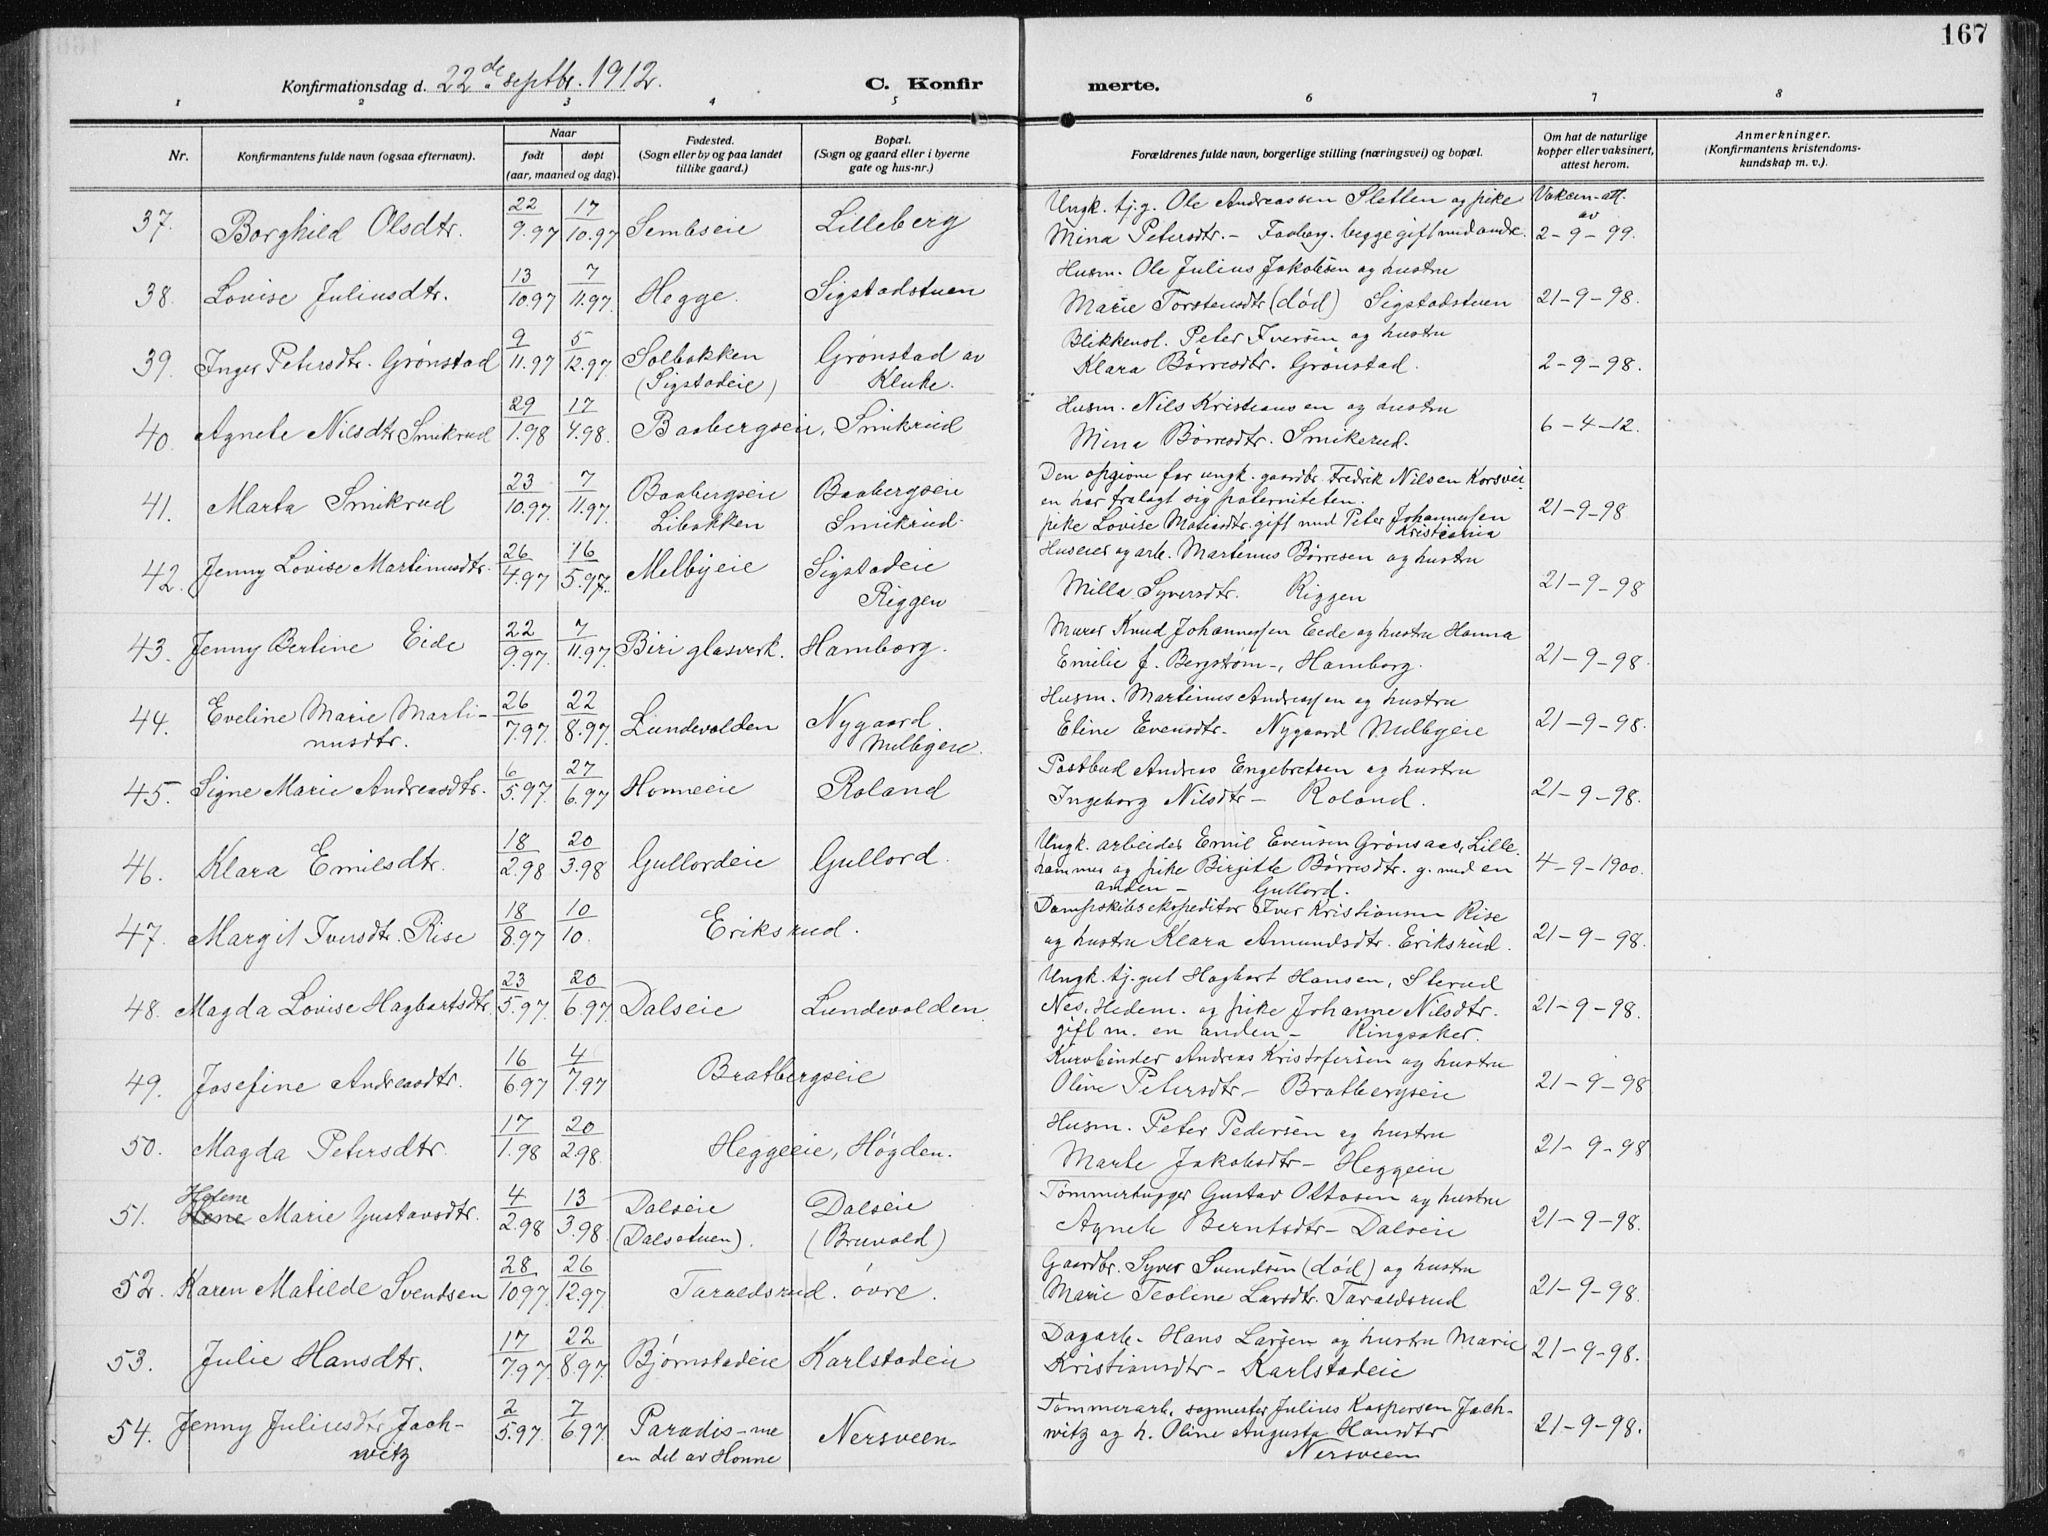 167
Konfirmationsdag d. 22de septbr. 1912.
C. Konfirmerte.
1 2 3 4 5 6 7 8
Nr.
Konfirmantens fulde navn (ogsaa efternavn).
Naar
født
døpt
(aar, maaned og dag).
Fødested.
(Sogn eller by og paa landet
tillike gaard.)
Bopæl.
(Sogn og gaard eller i byerne
gate og hus-nr.)
Forældrenes fulde navn, borgerlige stilling (næringsvei) og bopæl.
Om hat de naturlige
kopper eller vaksinert,
attest herom.
Anmerkninger.
(Konfirmantens kristendoms-
kundskap m. v.).
37. Borghild Olsdtr. 22/9.97 17/10.97 Sembseie Lilleberg
Ungk. tj.g. Ole Andreassen Sletten og pike
Mina Petersdtr. – Faaberg. begge gift med andre.
Vaksin-att. av
2-9-99.
38. Lovise Juliusdtr. 13/10.97 7/11.97 Hegge. Sigstadstuen
Husm. Ole Julius Jakobsen og hustru
Marie Torstensdtr (død) Sigstadstuen
21-9-98.
39. Inger Petersdtr. Grønstad 9/11.97 5/12.97 Solbakken (Sigstadeie) Grønstad av Kluke.
Blikkensl. Peter Iversen og hustru
Klara Børresdtr. Grønstad.
2-9-98.
40. Agnete Nilsdtr Smikrud 29/1.98 17/4.98 Baabergseie, Smikrud
Husm. Nils Kristiansen og hustru
Mina Børresdtr. Smikerud.
6-4-12.
41. Marta Smikrud 23/10.97 7/11.97 Baabergseie Libakken Baabergseie Smikrud.
Den opgivne far ungk. gaardbr. Fredrik Nilsen Korsvei-
en har fralagt sig paterniteten.
pike Lovise Matiasdtr. gift med Peter Johannessen
Kristiania
21-9-98
42. Jenny Lovise Martinusdtr. 26/4.97 16/5.97. Melbyeie Sigstadeie Riggen
Huseier og arb. Martinus Børresen og hustru
Milla Syversdtr. Riggen
21-9-98
43. Jenny Berline Eide 22/9.97. 7/11.97 Biri glasverk. Hamborg.
Murer Knud Johannessen Eide og hustru Hanna
Emilie f. Bergstøm –, Hamborg.
21-9-98.
44. Eveline Marie Marti-
nusdtr. 26/7.97 22/8.97 Lundevolden Nygaard Melbyeie.
Husm. Martinus Andreassen og hustru
Eline Evensdtr. Nygaard Melbyeie
21-9-98.
45. Signe Marie Andreasdtr. 6/5.97 27/6.97 Honneeie Roland
Postbud Andreas Engebretsen og hustru
Ingeborg Nilsdtr – Roland.
21-9-98.
46. Klara Emilsdtr. 18/2.98 20/3.98 Gullordeie Gullord.
Ungk. arbeider Emil Evensen Grønsaas, Lille-
hammer og pike Birgitte Børresdtr. g. med en
anden – Gullord.
4-9-1900.
47. Margit Iversdtr. Rise 18/8.97 10/10. Eriksrud.
Dampskibsekspeditør Iver Kristiansen Rise
og hustru Klara Amundsdtr. Eriksrud.
21-9-98.
48. Magda Lovise Hagbartsdtr. 23/5.97 20/6.97 Dalseie Lundevolden.
Ungk. tj.gut Hagbart Hansen, Sterud
Nes, Hedem. og pike Johanne Nilsdtr.
gift m. en anden – Ringsaker.
21-9-98.
49. Josefine Andreasdtr. 16/6.97 4/7.97 Bratbergseie
Kurvbinder Andreas Kristofersen og hustru
Oline Petersdtr – Bratbergseie
21-9-98
50. Magda Petersdtr. 17/1.98 20/2.98. Heggeeie, Høgden.
Husm. Peter Pedersen og hustru
Marte Jakobsdtr – Heggeeie
21-9-98
51. Helene Marie Gustavsdtr. 4/2.98 13/3.98 Dalseie (Dalsstuen). Dalseie (Bruvold)
Tømmerhugger Gustav Ottosen og hustru
Agnete Berntsdtr – Dalseie
21-9-98.
52. Karen Matilde Svendsen 28/10 97 26/12.97. Taraldsrud. øvre.
Gaardbr. Syver Svendsen (død) og hustru
Marie Teoline Larsdtr. Taraldsrud
21-9-98.
53. Julie Hansdtr. 17/7.97 22/8.97 Bjørnstadeie Karlstadeie
Dagarb. Hans Larsen og hustru Marie
Kristiansdtr – Karlstadeie
21-9-98.
54. Jenny Juliusdtr Jach-
witz 2/5.97. 7/6.97. Paradis –
en del av Honne Nersveen.
Tømmerarb. sagmester Julius Kaspersen Jach-
witz og h. Oline Augusta Hansdtr
Nersveen
21-9-98.